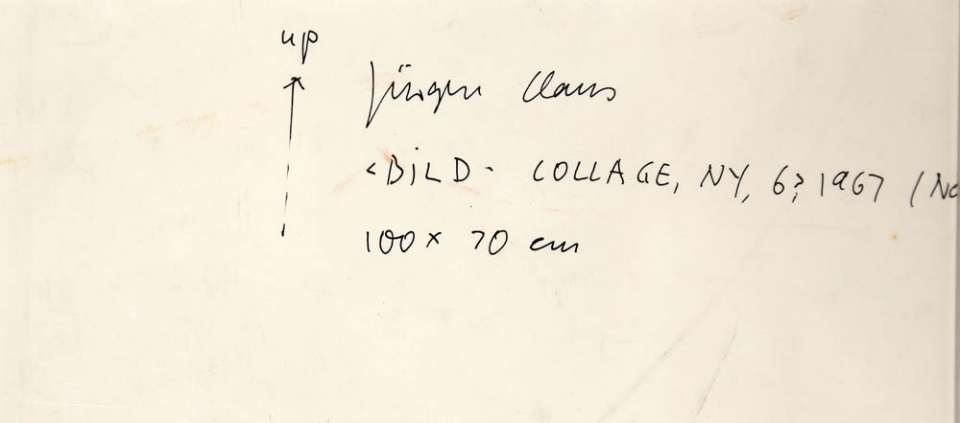 up
Jürgen Claus
<BILD- COLLAGE, NY, 6? 1967 (No
100 x 70 cm